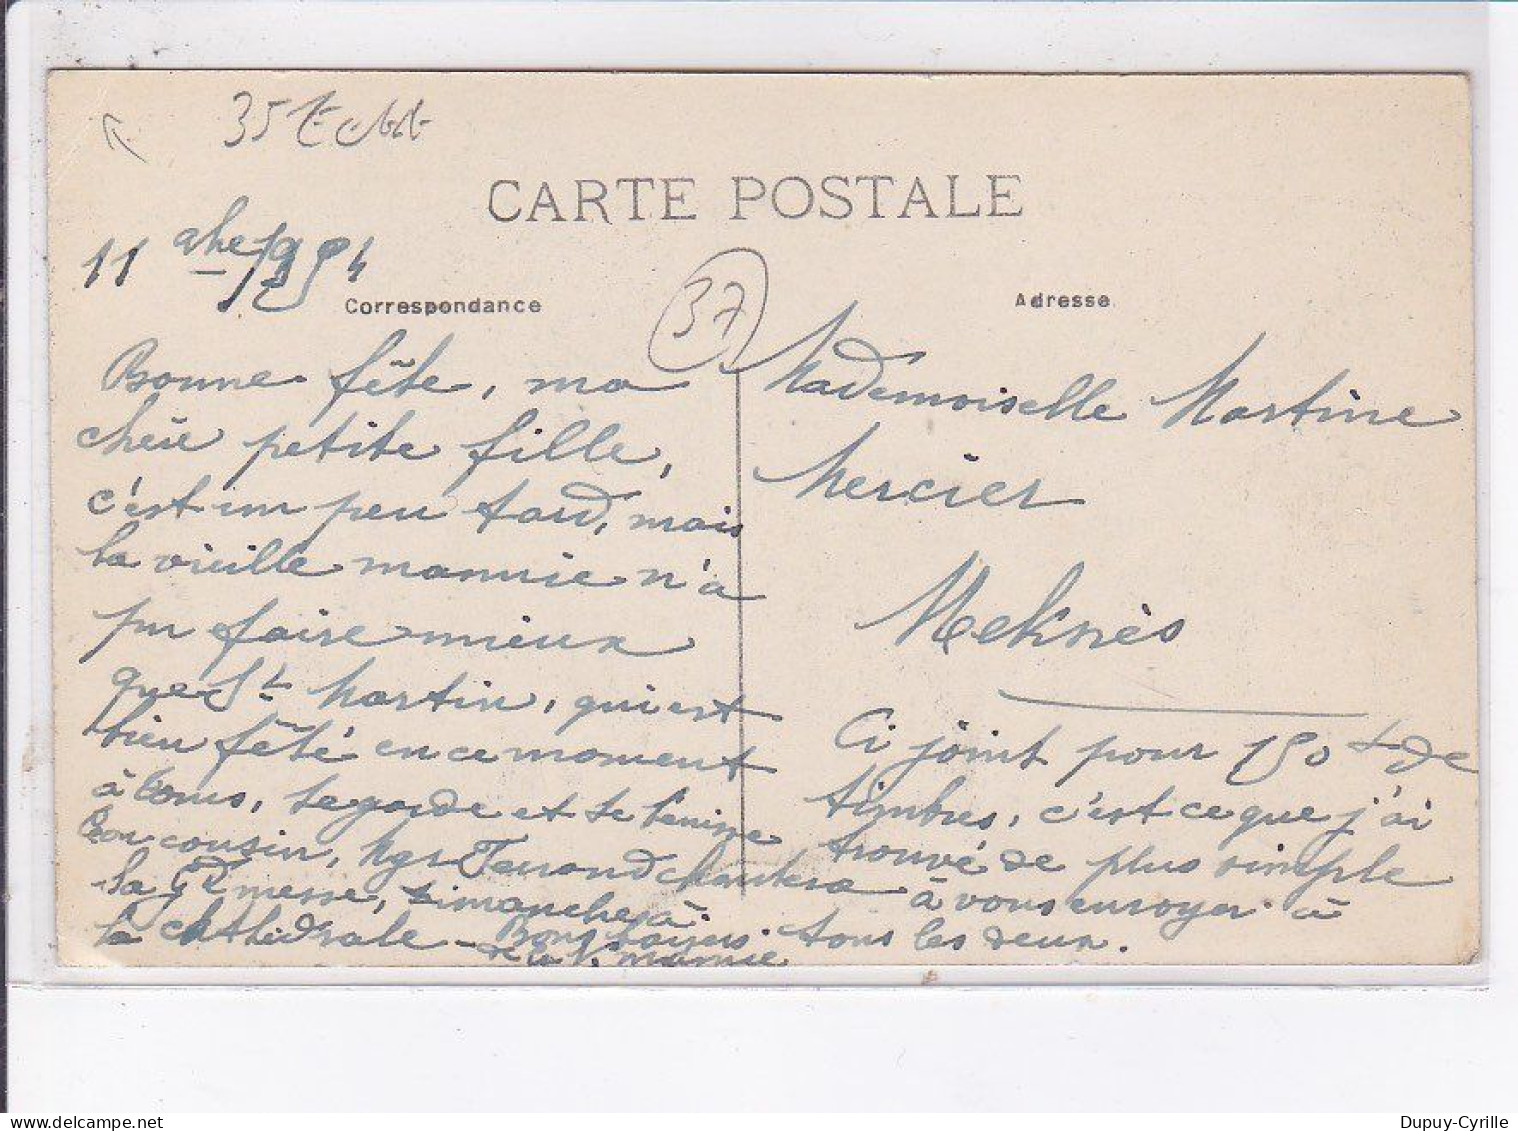 35
CARTE POSTALE
11 9bre 1954
37
Correspondance
Bonne fête, ma
chère petite fille,
c'est un peu tard, mais
la vieille mamie n'a
pu faire mieux
que St Martin, qui est
bien fêté en ce moment
à Tours, te garde et te bénisse
Ton cousin, Mgr Ferrand chantera
la Gde messe, dimanche à
la cathédrale - Bons baisers.
de la V. mamie
Adresse
Mademoiselle Martine
Mercier
Meknès
Ci joint pour 150 f de
timbres, c'est ce que j'ai
trouvé de plus simple
à vous envoyer à
tous les deux.
Dupuy-Cyrille